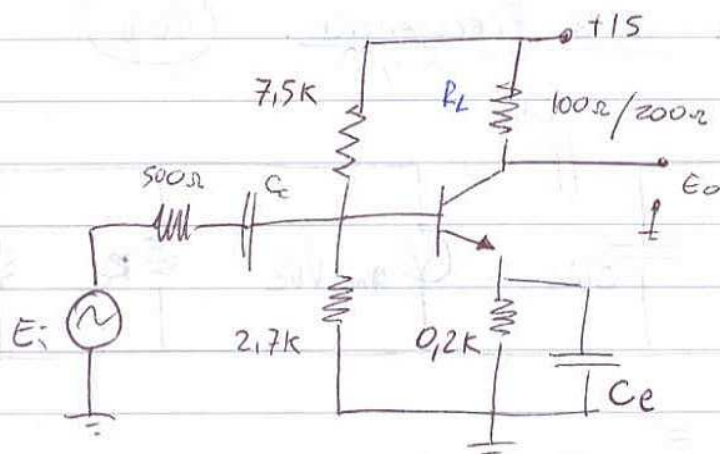 +15
7,5K
RL
100Ω/200Ω
500Ω
Cc
Eo
Ei
2.7K
0,2K
Ce